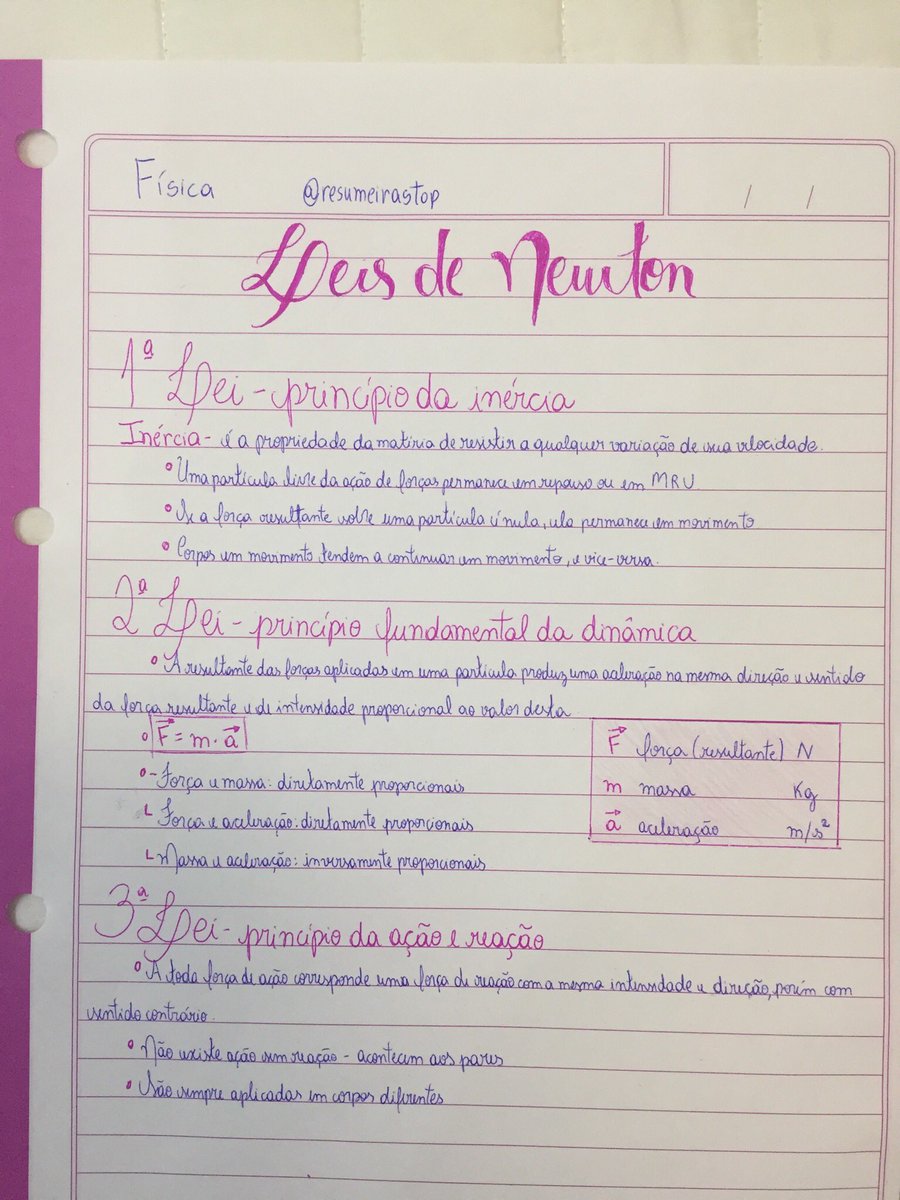 Física @resumeirastop / /
Leis de Newton
1ª Lei - princípio da inércia
Inércia - é a propriedade da matéria de resistir a qualquer variação de sua velocidade.
Uma partícula livre da ação de forças permanece em repouso ou em MRU
Se a força resultante sobre uma partícula é nula, ela permanece em movimento
Corpos em movimento tendem a continuar em movimento, e vice-versa.
2ª Lei - princípio fundamental da dinâmica
A resultante das forças aplicadas em uma partícula produz uma aceleração na mesma direção e sentido
da força resultante e de intensidade proporcional ao valor desta
F⃗ = m · a⃗
F⃗ força (resultante) N
- Força e massa: diretamente proporcionais
m massa Kg
Força e aceleração: diretamente proporcionais
a⃗ aceleração m/s²
Massa e aceleração: inversamente proporcionais
3ª Lei - princípio da ação e reação
A toda força de ação corresponde uma força de reação com a mesma intensidade e direção, porém com
sentido contrário.
Não existe ação sem reação - acontecem aos pares
São sempre aplicadas em corpos diferentes